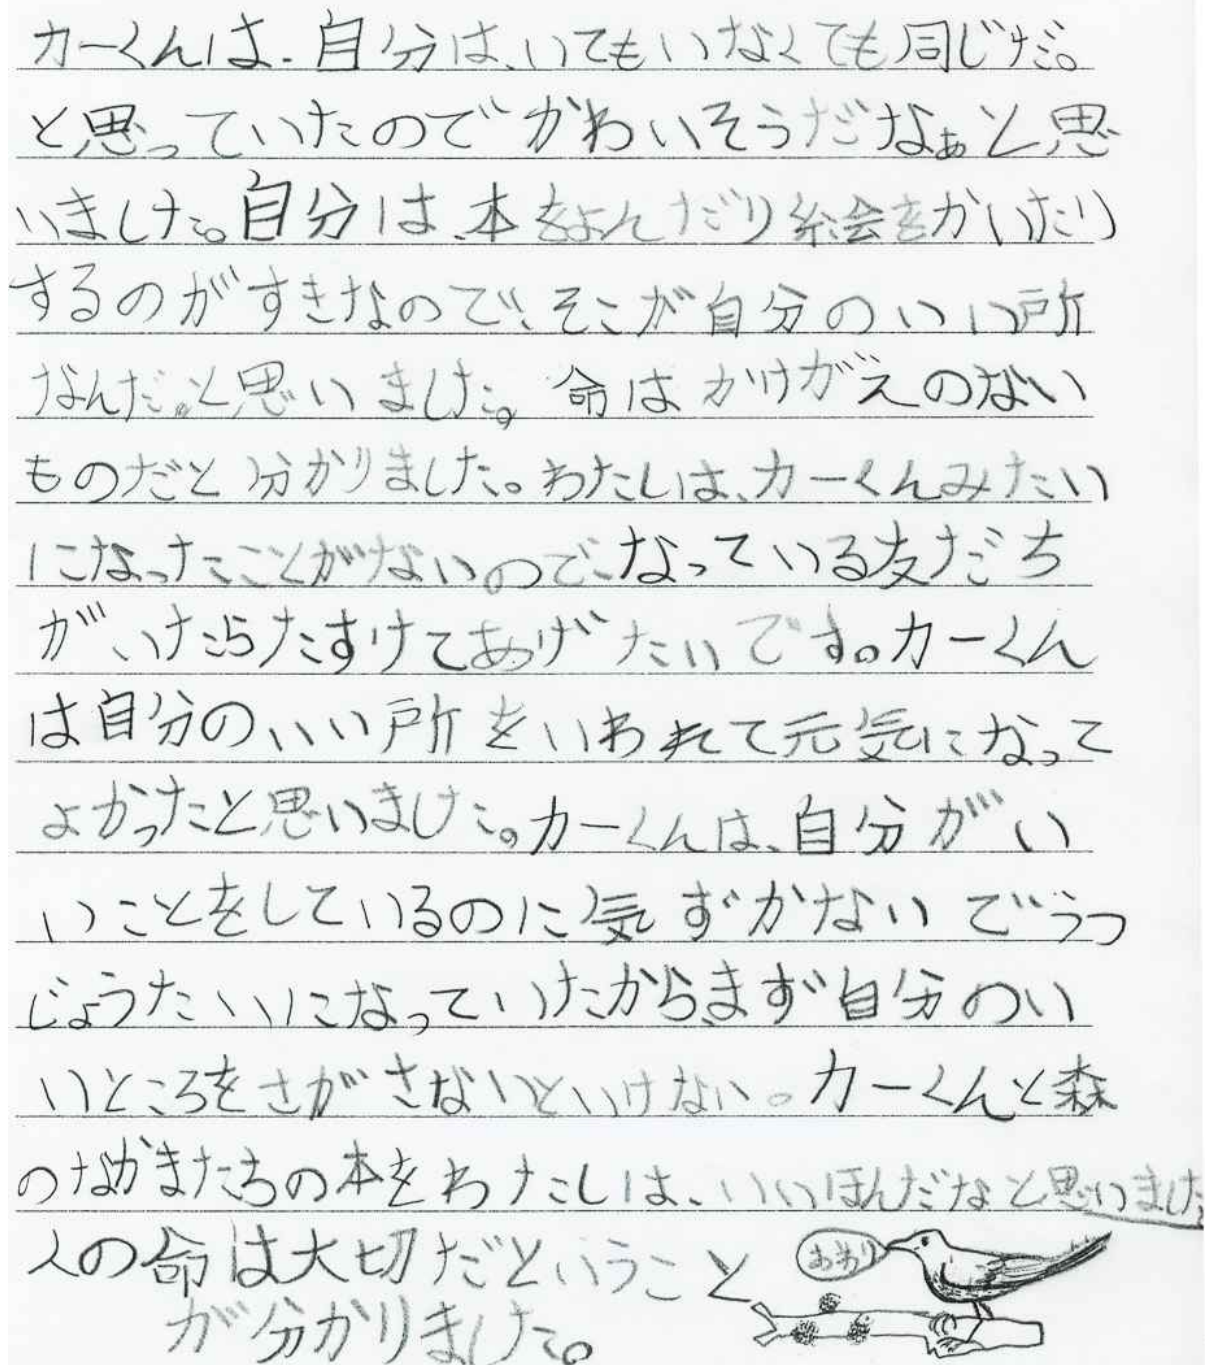 カーくんは、自分は、いてもいなくても同じだ。
と思っていたのでかわいそうだなぁと思
いました。自分は、本をよんだり絵会をかいたり
するのがすきなので、そこが自分のいい所
なんだ。と思いました。命はかけがえのない
ものだと分かりました。わたしは、カーくんみたい
になったことがないので、なっている友だち
がいたらたすけてあげたいです。カーくん
は自分のいい所をいわれて元気になって
よかったと思いました。カーくんは、自分がい
いことをしているのに気ずかないでうつ
じょうたいになっていたから、まず自分のい
いところをさがさないといけない。カーくんと森
のなかまたちの本をわたしは、いいほんだなと思いました
人の命は大切だということ
おわり
が分かりました。